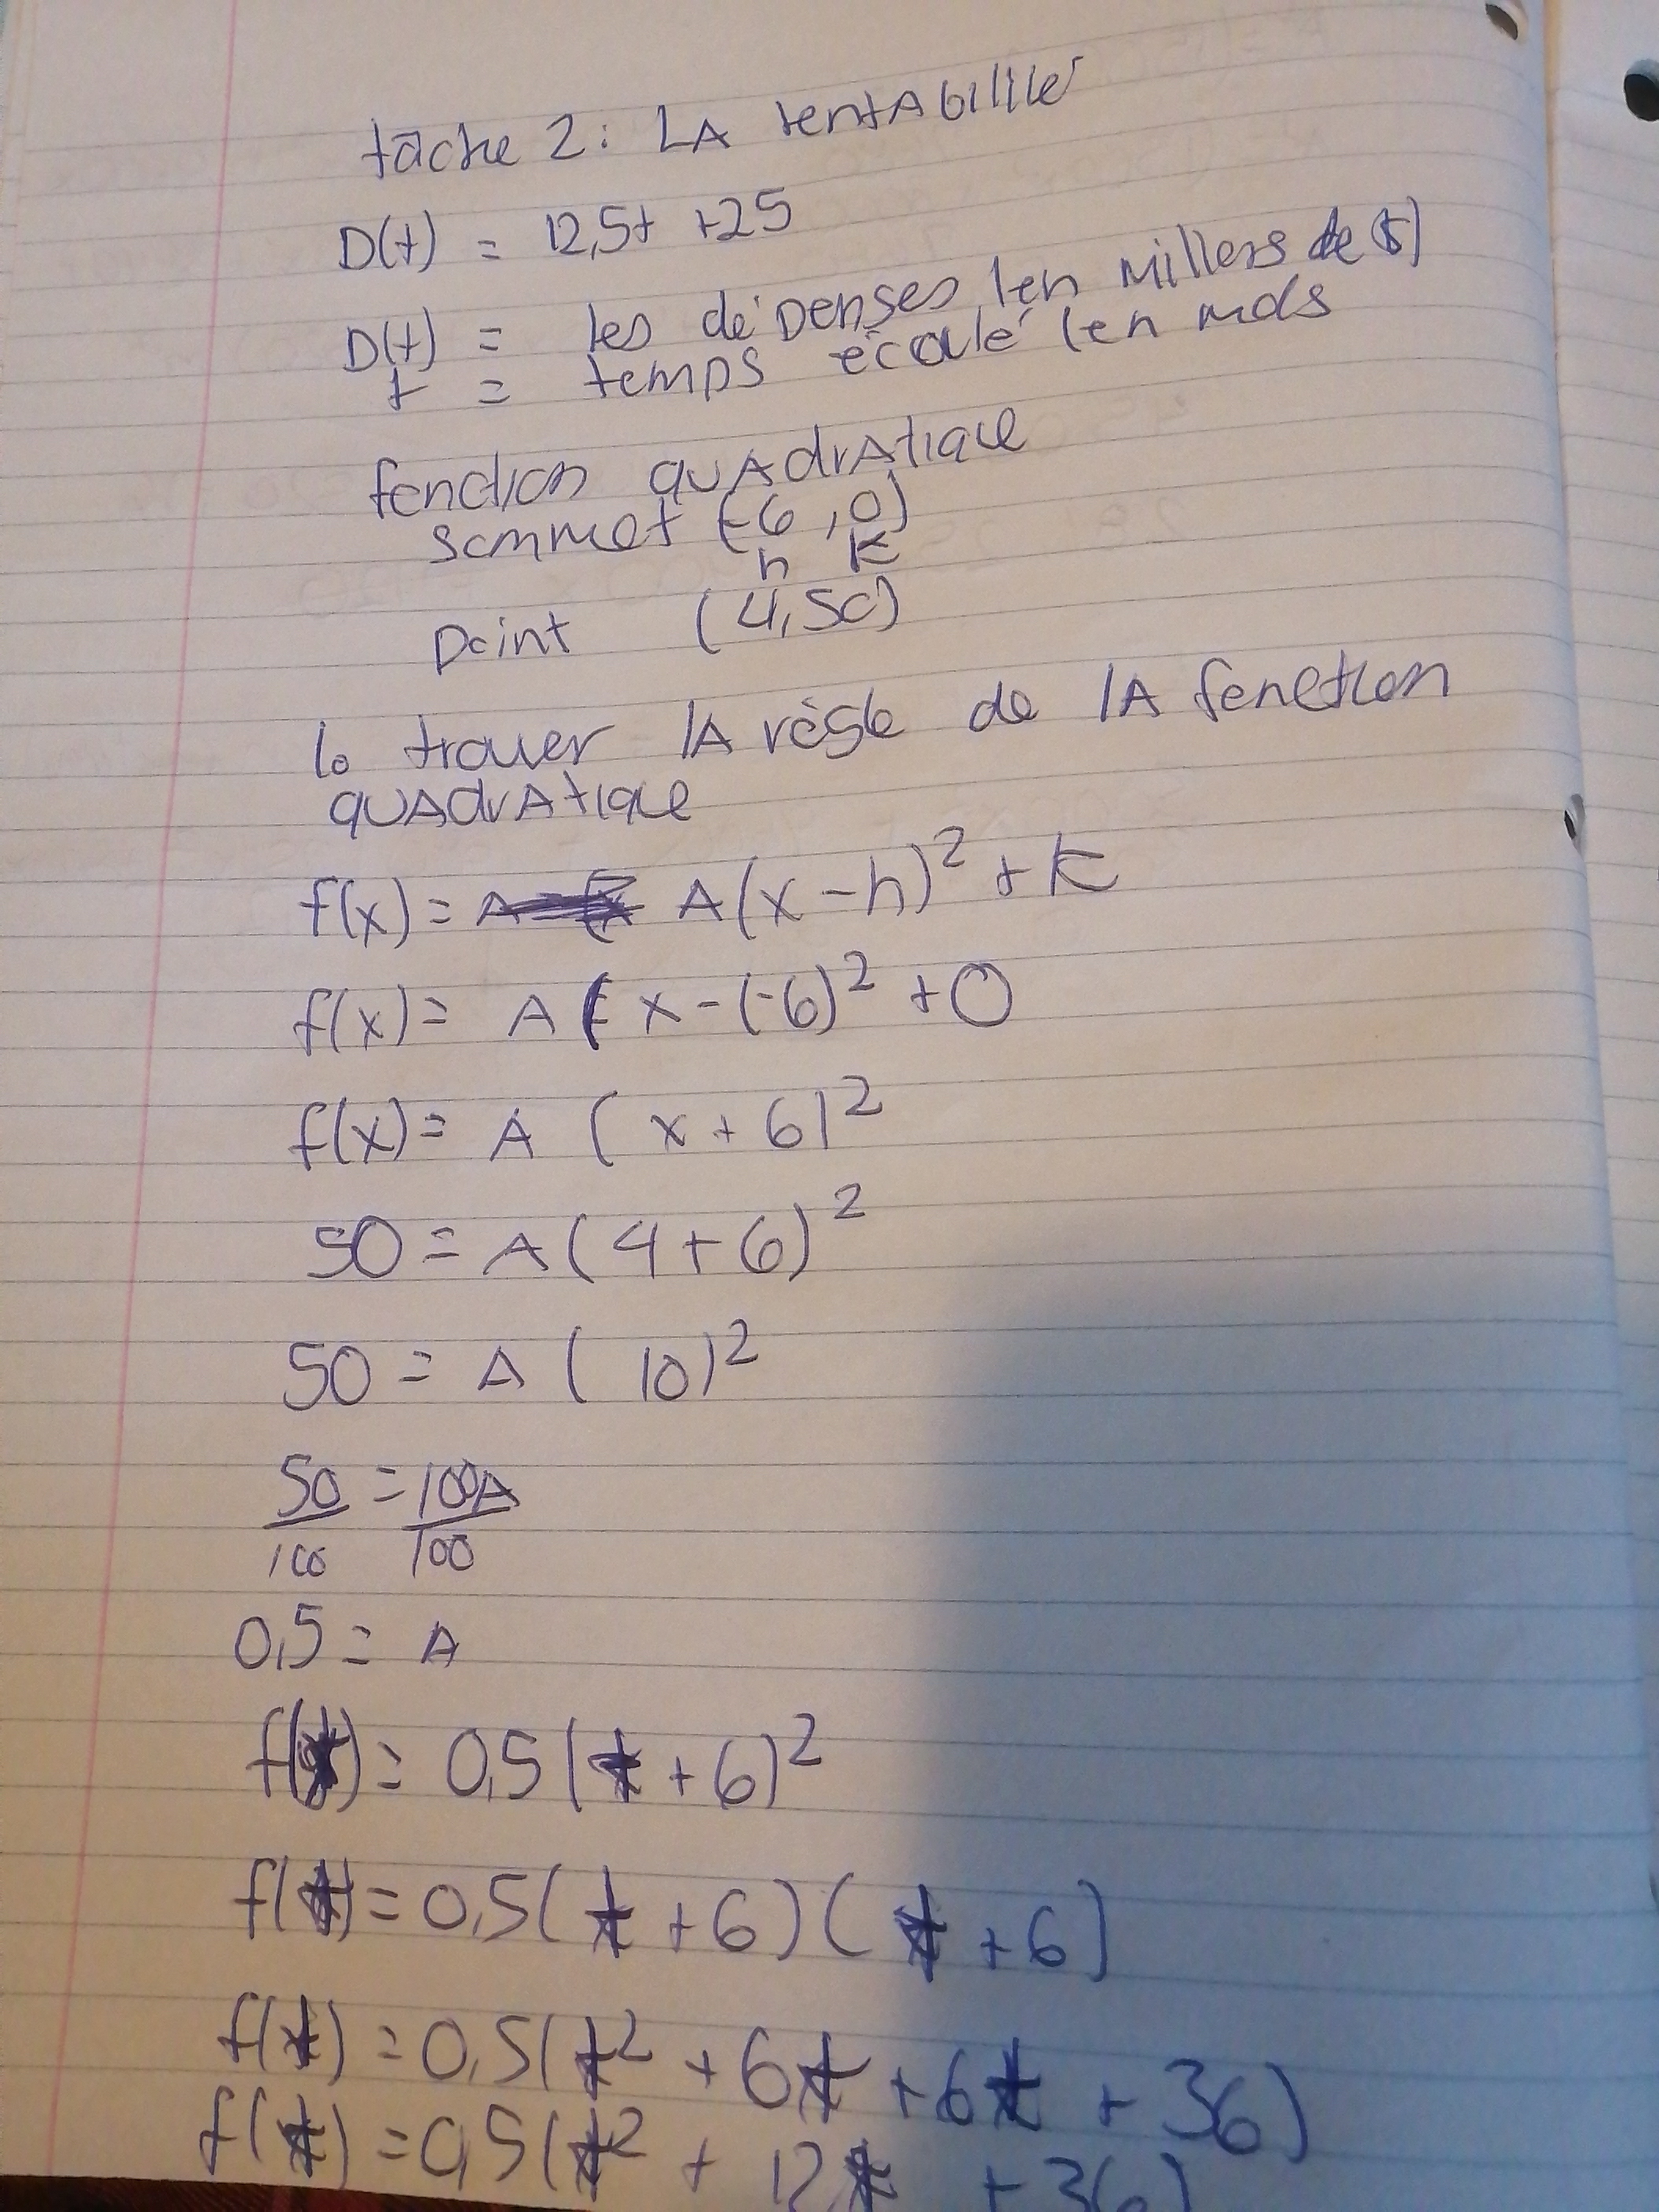 tâche 2: LA rentAbilité
D(t) = 12,5t +25
D(t) = les dépenses (en milliers de $)
t = temps écoulé (en mois
fonction quAdrAtique
sommet (-6, 0)
h k
Point (4,50)
1o trouver lA règle de lA fonction
quAdrAtique
f(x) = A(x-h)² + k
f(x) = A(x-(-6)² +0
f(x) = A (x+6)²
50 = A(4+6)²
50 = A (10)²
50 = 100A
100 100
0,5 = A
f(t) = 0,5(t +6)²
f(t) = 0,5(t +6)(t +6)
f(t) = 0,5(t² +6t +6t + 36)
f(t) = 0,5(t² + 12t +36)